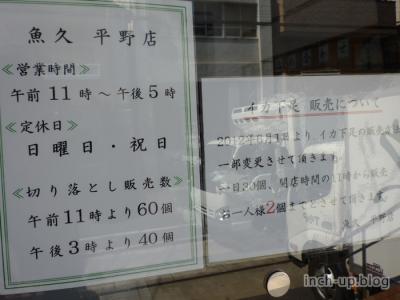 魚久 平野店
≪営業時間≫
午前11時～午後5時
≪定休日≫
日曜日・祝日
≪切り落とし販売数≫
午前11時より60個
午後3時より40個
イカ下足 販売について
2012年6月1日より、イカ下足の販売方法
一部変更させて頂きます
一日30個、開店時間の11時から販売
お一人様2個までとさせて頂きます
魚久 平野店
inch-up.blog